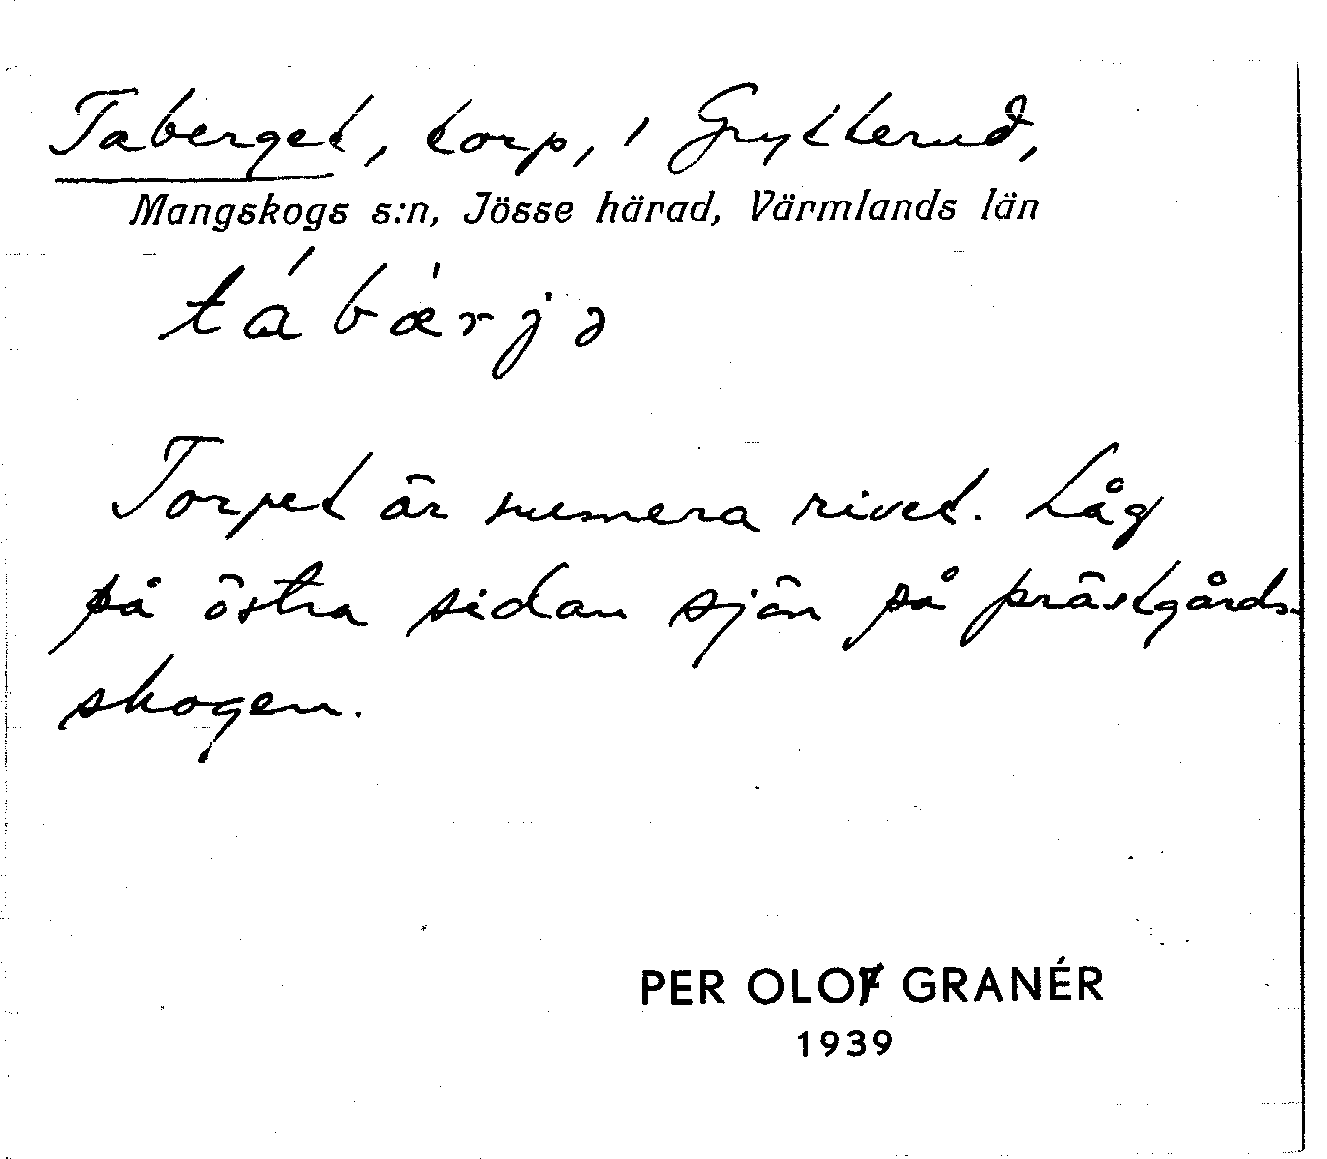 Taberget, torp, i Grytterud,
Mangskogs s:n, Jösse härad, Värmlands län
tábæ̀rjə
Torpet är numera rivet. Låg
på östra sidan sjön på prästgårds-
skogen.
PER OLOF GRANÉR
1939